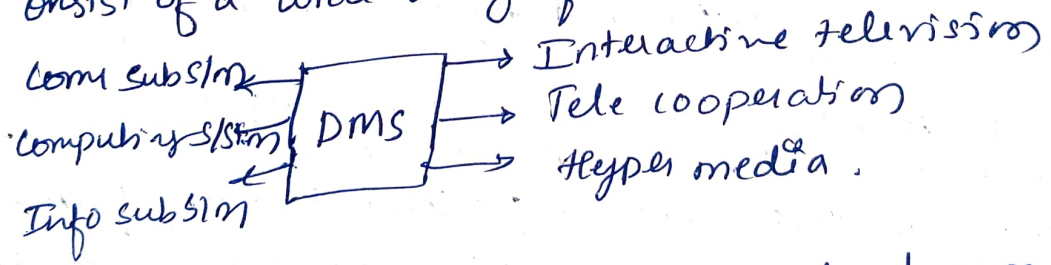 onsist of a
Com subs/m
Computing s/stm
Info subs/m
DMS
Interactive television
Tele cooperation
Hyper media.